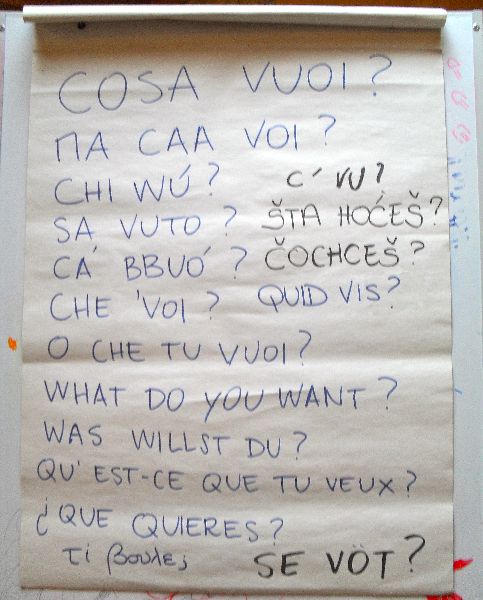 COSA VUOI?
ΠA CAA VOI?
CHI WÚ? C' VU?
SA VUTO? ŠTA HOĆEŠ?
CÁ BBUÓ? ČOCHCEŠ?
CHE 'VOI? QUID VIS?
O CHE TU VUOI?
WHAT DO YOU WANT?
WAS WILLST DU?
QU'EST-CE QUE TU VEUX?
¿QUE QUIERES?
τί βουλει; SE VÖT?